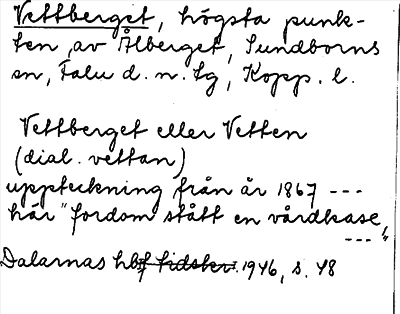 Vettberget, högsta punk-
ten av Ålberget, Sundborns
sn, Falu d. n. tg, Kopp. l.
Vettberget eller Vetten
(dial. vettan)
uppteckning från år 1867 ---
här "fordom stått en vårdkase,
---"
Dalarnas hbf tidskr. 1946, s. 48